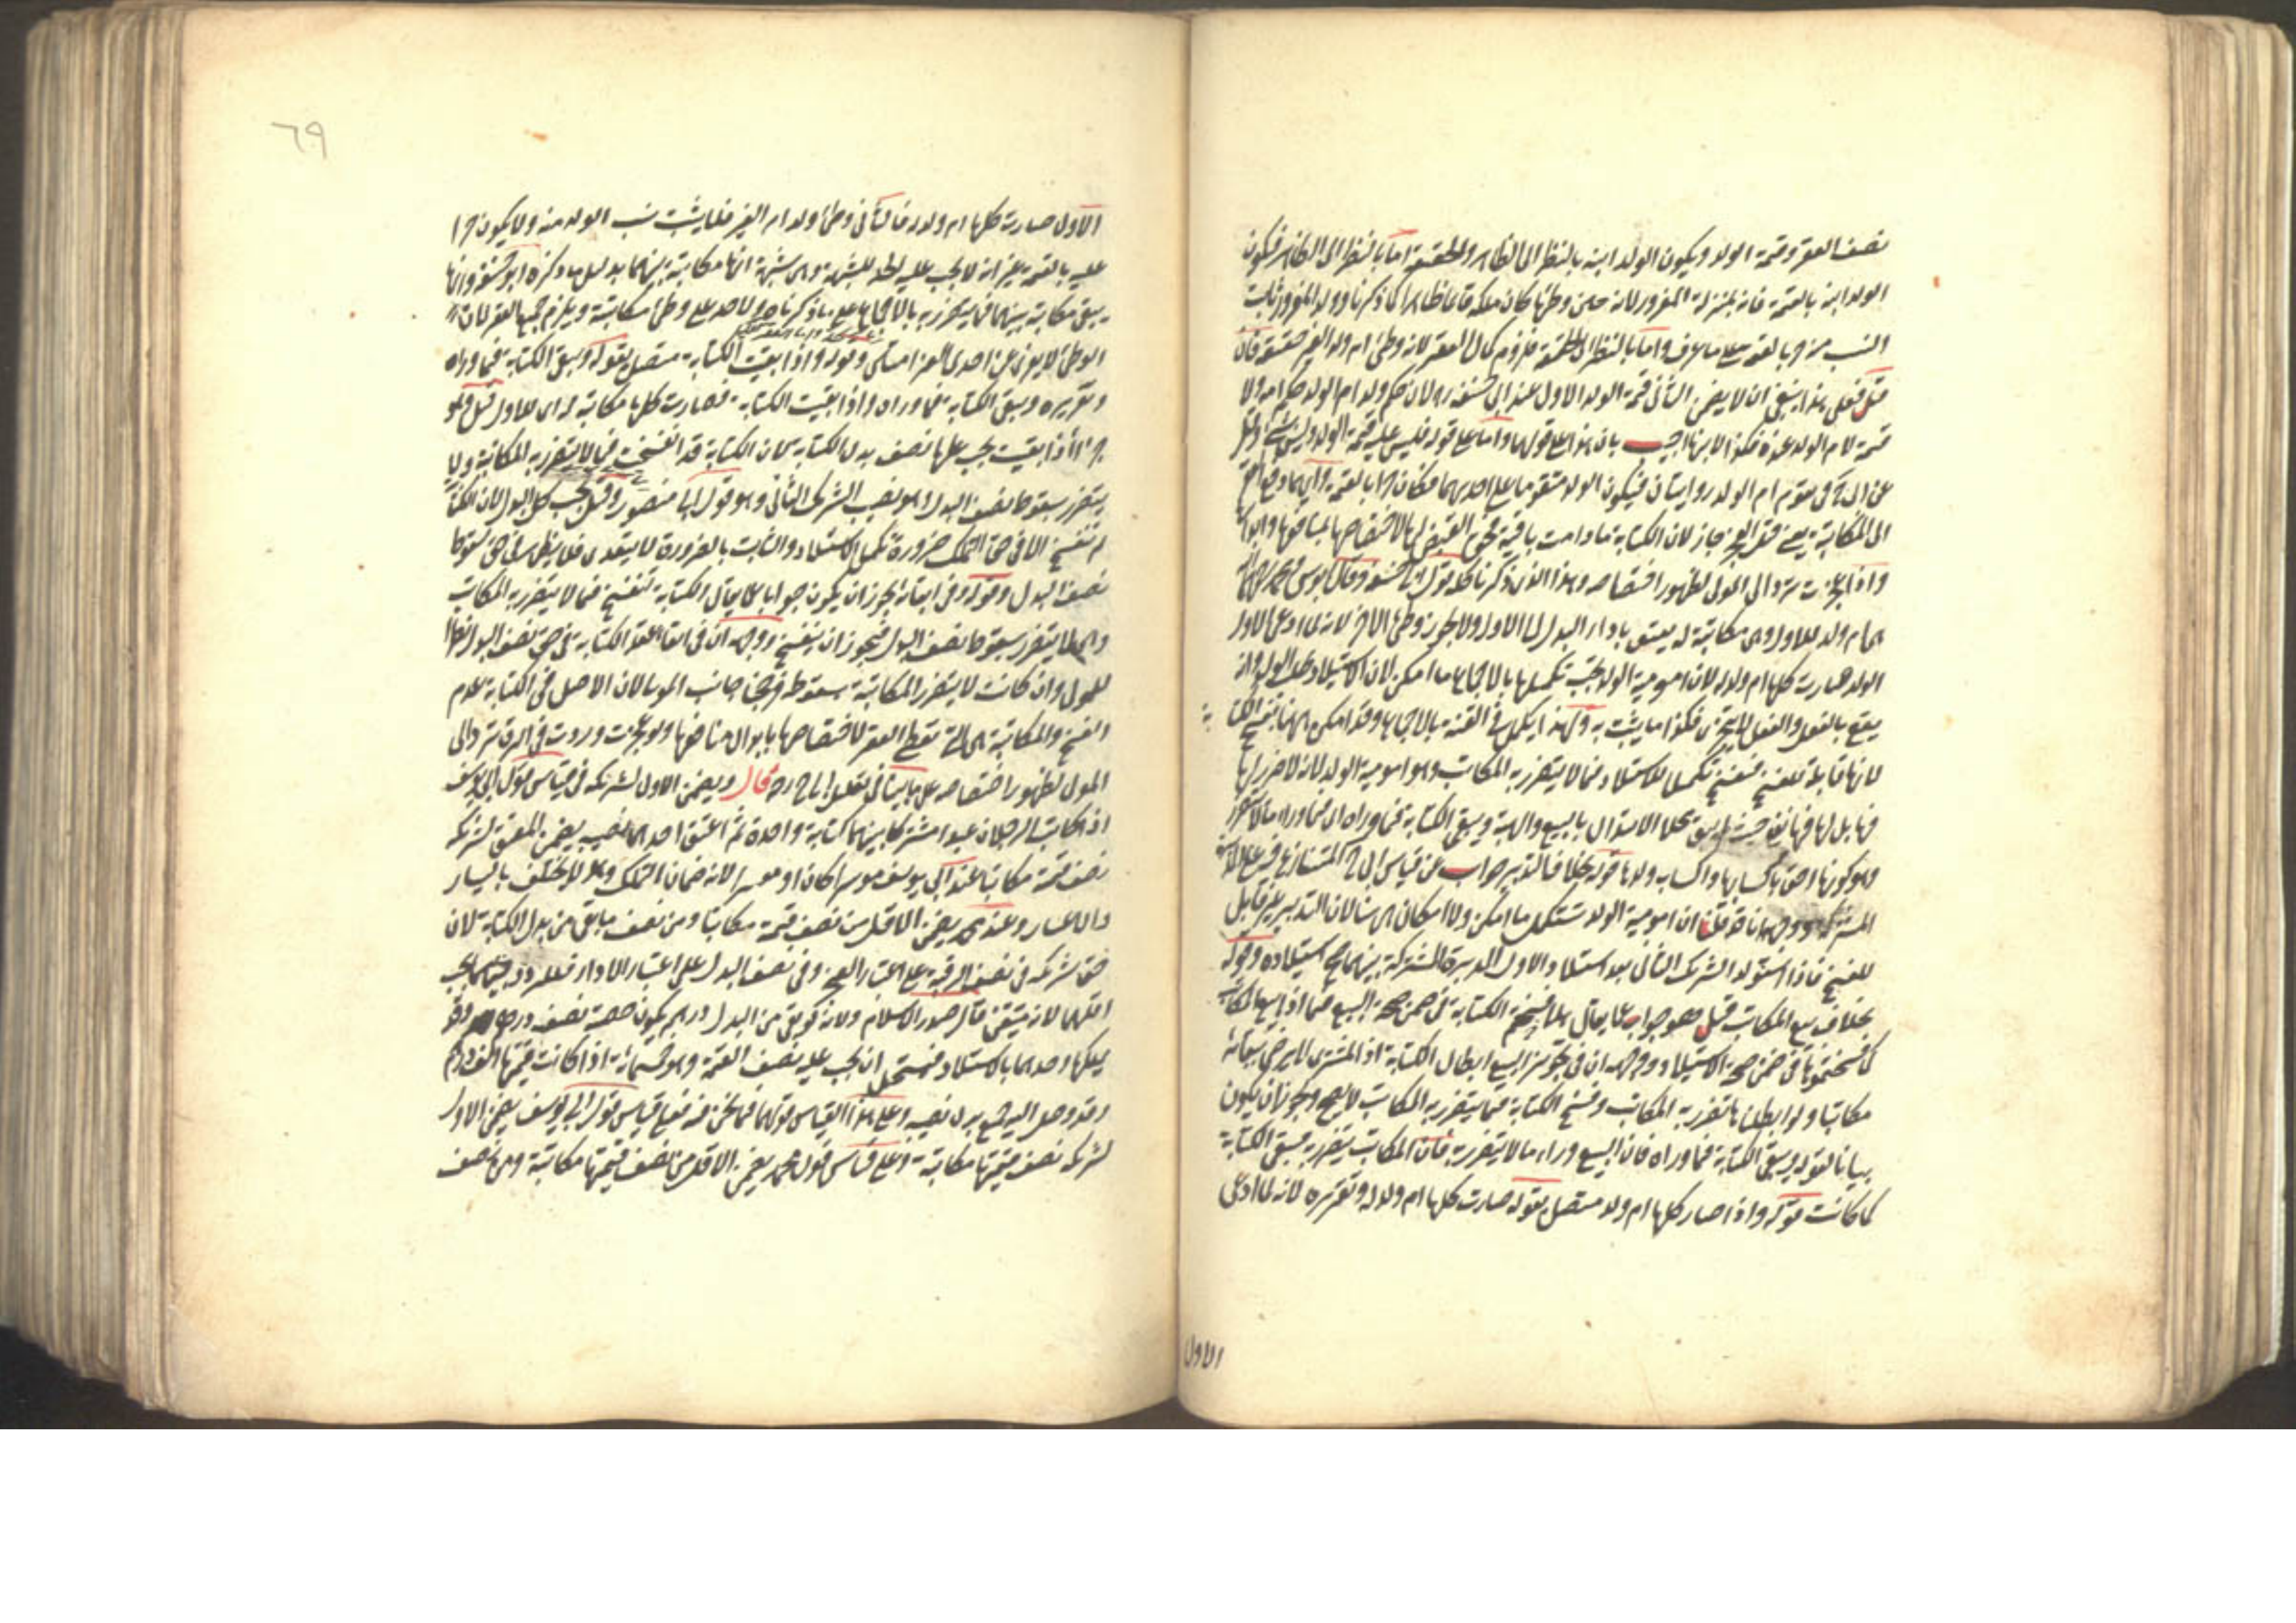 نصف العقر وقيمة الولد ويكون الولد ابنه بالنظر الى الظاهر والحقيقة اما بالنظر الى الظاهر فيكون
الولد ابنه بالقيمة فانه بمنزلة المغرور لانه حين وطئها كان ملكه قائما ظاهرا كما ذكرنا وولد المغرور ثابت
النسب منه حر بالقيمة على ما عرف واما بالنظر الى الحقيقة فلزوم كمال العقر لانه وطئ ام ولد الغير حقيقة فان
قيل فعلى هذا ينبغي ان لا يضمن الثاني قيمة الولد الاول عند ابي حنيفة ره لان حكم ولد ام الولد حكم امه ولا
قيمة لام الولد عنده فكذا لابنها اجيب بان هذا على قولهما واما على قوله فليس عليه قيمة الولد
عن ابي ح في تقوم ام الولد روايتان فيكون الولد متقوما على احديهما فكان حرا بالقيمة وايهما دفع العقر
الى المكاتبة يعني قبل العجز جاز لان الكتابة ما دامت باقية فحق القبض لها لاختصاصها بمنافعها وابدالها
واذا عجزت ترد الى المولى لظهور اختصاصه وهذا الذي ذكرنا كله قول ابي حنيفة وقال ابو يوسف ومحمد رحمهما الله
هي ام ولد للاول وهي مكاتبة له يعتق باداء البدل الى الاول ولا يجوز وطئ الآخر لانه لما ادعى الاول
الولد صارت كلها ام ولد له لان امومية الولد يجب تكميلها بالاجماع ما امكن لان الاستيلاد طلب الولد وانه
يقع بالفعل والفعل لا يتجزى فكذا ما يثبت به ولهذا يكمل في القنة بالاجماع وقد امكن ههنا بفسخ الكتابة
لانها قابلة للفسخ فتفسخ تكميلا للاستيلاد فيما لا يتضرر به المكاتب وهو امومية الولد لانه لا ضرر لها
فيها بل لها فيها نفع حيث لم يبق محلا للابتذال بالبيع والهبة ويبقى الكتابة فيما وراه اي فيما وراء ما لا يتضرر
وهو كونها احق باكسابها واكساب ولدها قوله بخلاف التدبير جواب عن قياس ابي ح المتنازع فيه على
المشتركة ووجهه ما قلنا ان امومية الولد تستكمل ما امكن ولا امكان هنا لان التدبير غير قابل
للفسخ فاذا استولد الشريك الثاني بعد استيلاد الاول المدبرة المشتركة بينهما صح استيلاده وقوله
بخلاف بيع المكاتب قيل هو جواب عما يقال هلا فسختم الكتابة في ضمن صحة البيع فيما اذا بيع المكاتب
كما فسختموها في ضمن صحة الاستيلاد ووجهه ان في تجويز البيع ابطال الكتابة اذ المشتري لا يرضى ببقائه
مكاتبا ولو ابطلناها تضرر به المكاتب وفسخ الكتابة فيما يتضرر به المكاتب لا يصح ويجوز ان يكون
بيانا لقوله ويبقى الكتابة فيما وراه فان البيع وراء ما لا يتضرر به فان المكاتب يتضرر به فتبقى الكتابة
كما كانت قوله واذا صار كلها ام ولد متصل بقوله صارت كلها ام ولد له وتقريره لانه لما ادعى
الاول
٦٩
الاول صارت كلها ام ولد له فالثاني وطئ ولد ام الغير فلا يثبت نسب الولد منه ولا يكون حرا
عليه بالقيمة غير انه لا يجب عليه الحد للشبهة وهي شبهة انها مكاتبة بينهما بدليل ما ذكره ابو حنيفة وانها
يبقى مكاتبة بينهما فيما يتضرر به بالاجماع على ما ذكرنا ولا حد على وطئ مكاتبته ويلزم جميع العقر لان
الوطئ لا يعرى عن احدى الغرامتين وقوله واذا بقيت الكتابة متصل بقوله وتبقى الكتابة فيما وراه
وتقريره ويبقى الكتابة فيما وراه واذا بقيت الكتابة فصارت كلها مكاتبة له اي للاول قيل وهو
جزاء اذا بقيت يجب عليها نصف بدل الكتابة لان الكتابة قد انفسخت فيما لا يتضرر به المكاتبة ولا
يتضرر بسقوط نصف البدل وهو نصيب الشريك الثاني وهو قول ابي منصور وقيل يجب كل البدل لان الكتابة
لم تنفسخ الا في حق التملك ضرورة تكميل الاستيلاد والثابت بالضرورة لا يتعدى فلا يظهر في حق سقوط
نصف البدل وقوله وفي ابقائه يجوز ان يكون جوابا عما يقال الكتابة تنفسخ فيما لا يتضرر به المكاتب
والمكاتبة لا يتضرر بسقوط نصف البدل فيجوز ان ينفسخ ووجهه ان في ابقاء عقد الكتابة في حق نصف البدل نظرا
للمولى وان كانت لا يتضرر المكاتبة بسقوطه فرجحنا جانب المولى لان الاصل في الكتابة عدم
الفسخ والمكاتبة هي التي تعطى العقر لاختصاصها بابدال منافعها ولو عجزت وردت في الرق ترد الى
المولى لظهور اختصاصه على ما بينا في تعليل ابي ح ره قال ويضمن الاول لشريكه في قياس قول ابي يوسف
اذا كاتب الرجلان عبدا مشتركا بينهما كتابة واحدة ثم اعتق احدهما نصيبه يضمن المعتق لشريكه
نصف قيمته مكاتبا عند ابي يوسف موسرا كان او معسرا لانه ضمان التملك وهو لا يختلف باليسار
والاعسار وعند محمد يضمن الاقل من نصف قيمته مكاتبا ومن نصف ما بقي من بدل الكتابة لان
حق شريكه في نصف الرقبة على اعتبار العجز وفي نصف البدل على اعتبار الاداء فللتردد بينهما يجب
اقلهما لانه متيقن قال صدر الاسلام ولانه لو بقي من البدل درهم يكون حصته نصف درهم وقد
يملكها احدهما بالاستيلاد فيستحيل ان يجب عليه نصف القيمة وهو خمسمائة اذا كانت قيمتها الف درهم
وقد وصل اليه جميع بدل نصيبه وعلى هذا القياس قولهما فيما نحن فيه فعلى قياس قول ابي يوسف يضمن الاول
لشريكه نصف قيمتها مكاتبة وعلى قياس قول محمد يضمن الاقل من نصف قيمتها مكاتبة ومن نصف